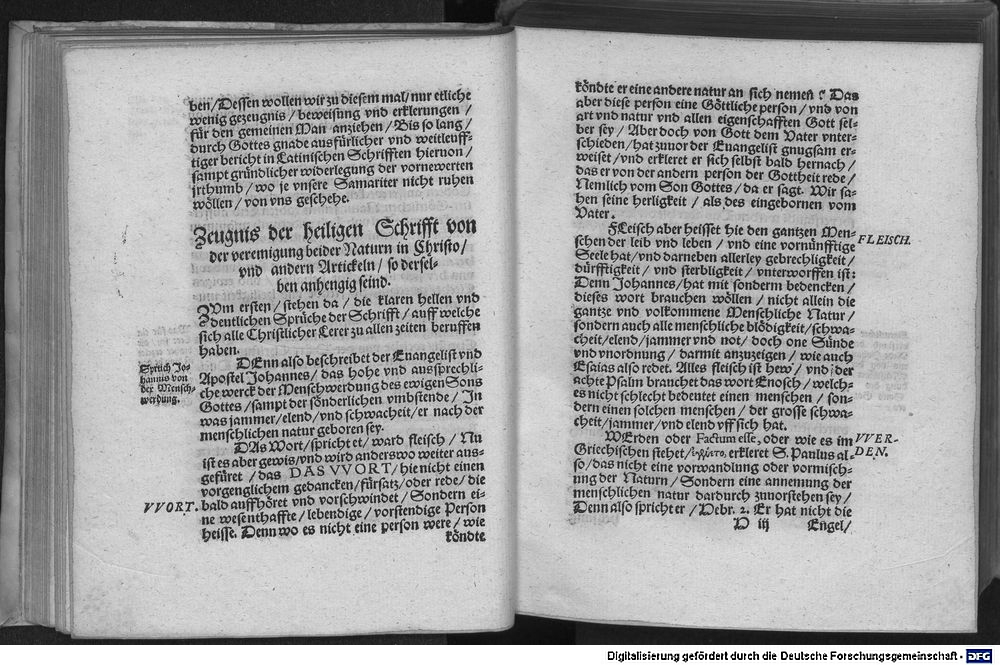 ben/Dessen wollen wir zu diesem mal/nur etliche
wenig gezeugnis / beweisung vnd erklerungen /
für den gemeinen Man anziehen / Bis so lang /
durch Gottes gnade ausfürlicher vnd weitleuff-
tiger bericht in Latinischen Schrifften hieruon /
sampt gründlicher widerlegung der vornewerten
irthumb / wo je vnsere Samariter nicht ruhen
wöllen / von vns geschehe.
Zeugnis der heiligen Schrifft von
der vereinigung beider Naturn in Christo/
vnd andern Artickeln / so dersel-
ben anhengig seind.
ZVm ersten / stehen da / die klaren hellen vnd
deutlichen Sprüche der Schrifft / auff welche
sich alle Christlicher Lerer zu allen zeiten beruffen
haben.
DEnn also beschreibet der Euangelist vnd
Apostel Johannes / das hohe vnd aussprechli-
che werck der Menschwerdung des ewigen Sons
Gottes / sampt der sönderlichen vmbstende / In
was jammer/elend/vnd schwacheit/er nach der
menschlichen natur geboren sey.
Spruch Jo-
hannis von
der Mensch-
werdung.
DAs Wort/spricht er/ ward fleisch / Nu
ist es aber gewis/vnd wird anderswo weiter aus-
gefüret / das DAS VVORT/ hie nicht einen
vorgenglichem gedancken/fürsatz/oder rede/die
bald auffhöret vnd vorschwindet / Sondern ei-
ne wesenthaffte/lebendige/vorstendige Person
heisse. Denn wo es nicht eine person were/ wie
VVORT.
köndte
köndte er eine andere natur an sich nemen? Das
aber diese person eine Göttliche person / vnd von
art vnd natur vnd allen eigenschafften Gott sel-
ber sey / Aber doch von Gott dem Vater vnter-
schieden/hat zuuor der Euangelist gnugsam er-
weiset /vnd erkleret er sich selbst bald hernach /
das er von der andern person der Gottheit rede/
Nemlich vom Son Gottes / da er sagt. Wir sa-
hen seine herligkeit / als des eingebornen vom
Vater.
FLeisch aber heisset hie den gantzen Men-
schen der leib vnd leben / vnd eine vornünfftige
Seele hat/vnd darneben allerley gebrechligkeit/
dürfftigkeit / vnd sterbligkeit / vnterworffen ist:
Denn Johannes/hat mit sonderm bedencken/
dieses wort brauchen wöllen / nicht allein die
gantze vnd volkommene Menschliche Natur /
sondern auch alle menschliche blödigkeit/schwa-
cheit/elend/jammer vnd not/ doch one Sünde
vnd vnordnung / darmit anzuzeigen / wie auch
Esaias also redet. Alles fleisch ist hew/ vnd der
achte Psalm brauchet das wort Enosch / welch-
es nicht schlecht bedeutet einen menschen / son-
dern einen solchen menschen / der grosse schwa-
cheit/jammer/vnd elend vff sich hat.
FLEISCH.
WErden oder Factum esse, oder wie es im
Griechischen stehet/ἐγένετο, erkleret S. Paulus al-
so/das nicht eine vorwandlung oder vormisch-
ung der Naturn / Sondern eine annemung der
menschlichen natur dardurch zuuorstehen sey /
Denn also spricht er / Hebr. 2. Er hat nicht die
VVER-
DEN.
D iij Engel/
Digitalisierung gefördert durch die Deutsche Forschungsgemeinschaft - DFG